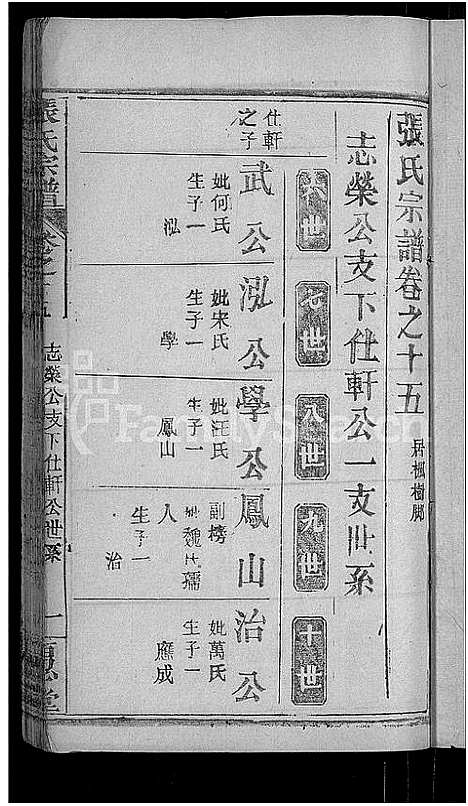 張氏宗譜卷之十五 居楓樹脚
志榮公支下仕軒公一支世系
六世 七世 八世 九世 十世
仕軒之子
武公
妣何氏
生子一
泓
泓公
妣宋氏
生子一
學
學公
妣汪氏
生子一
鳳山
鳳山
副榜
妣魏氏孺人
生子一
治
治公
妣萬氏
生子一
應成
張氏宗譜
卷之十五
志榮公支下仕軒公世系
一
堂
FamilySearch